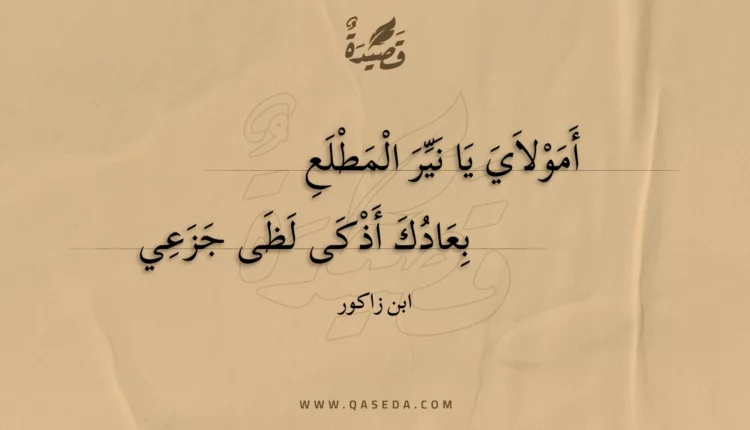 قَصِيدَةٌ
أَمَوْلاَيَ يَا نَيِّرَ الْمَطْلَعِ
بِعَادُكَ أَذْكَى لَظَى جَزَعِي
ابن زاكور
WWW.QASEDA.COM